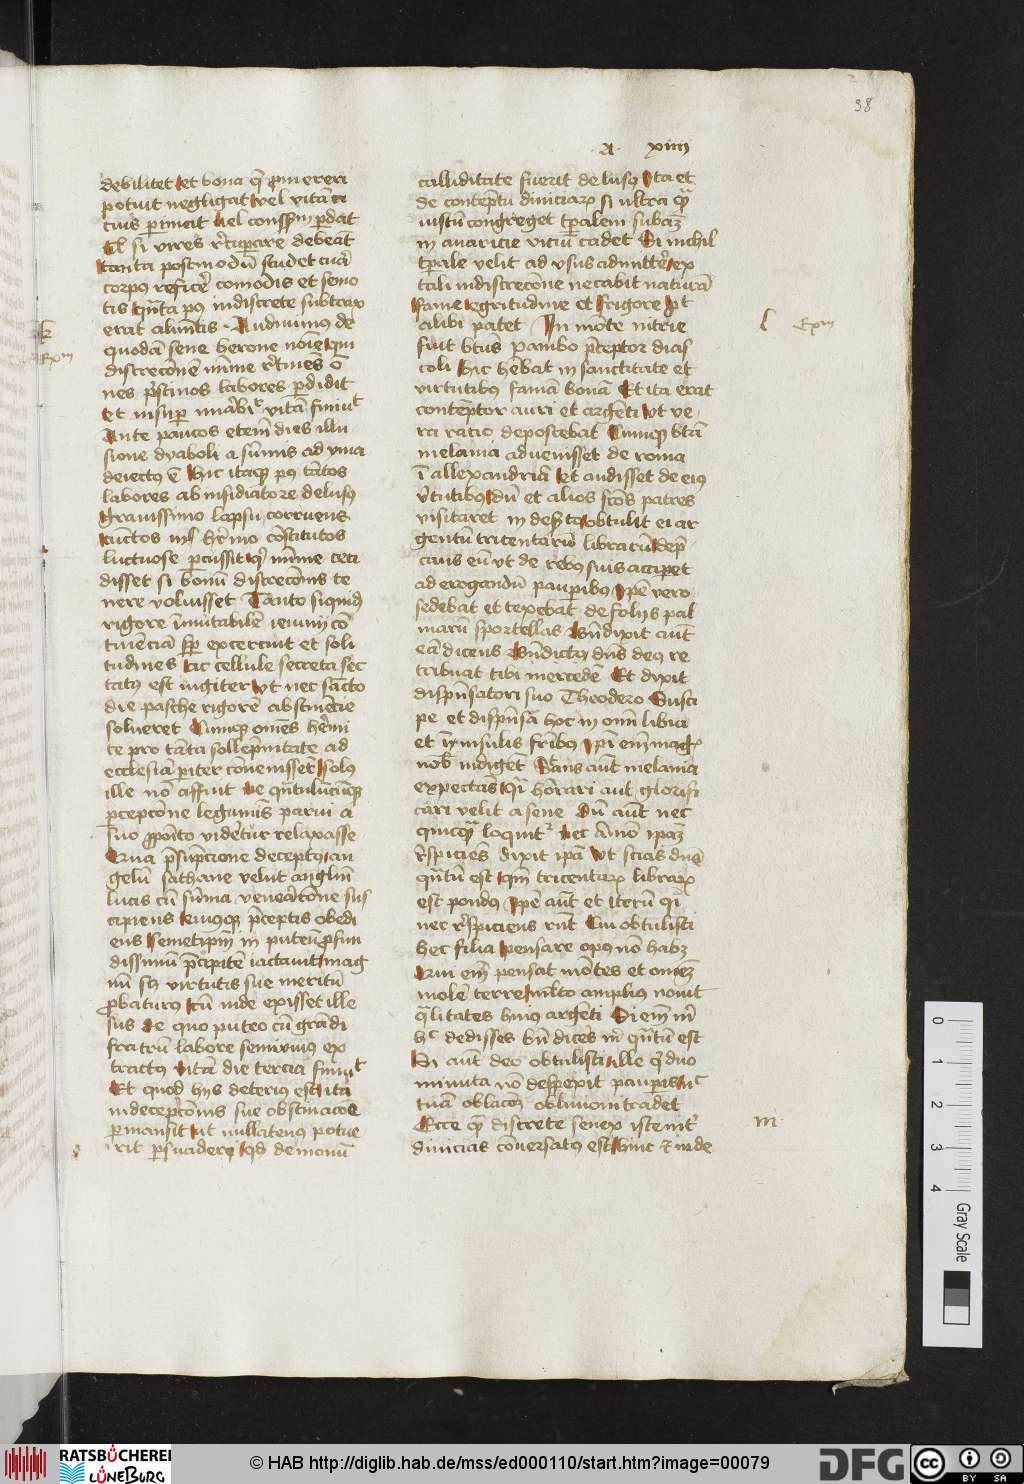 38
A. xiiii
debilitet et bona q̄ promereri
potuit negligat vel vitā
cius perimeit vel perdat
Et si vires recuperare debeāt
tanta postmodū studet cura
corpus reficere comodis et semo
tis quāta pus indiscrete subtrax
erat alimētis Audiuimus de
k
quodā sene herone noīe qui
Exm
discrecōne mīme retinēs ō
nes pristinos labores perdidit
et insuper vitā finiuit
Ante paucos etem̄ dies illu
sione dyaboli a sūmis ad yma
deiectus ē Hic itaque pus tātos
labores ab insidiatore delusus
grauissimo lapsu corruens
cunctos heremo cōstitutos
luctuose percussit quod mīme ceci
disset si bonū discrecōnis te
nere voluisset Tanto siquidē
rigore īmutabilē ieiunij cō
tinēciā semper excercuit et soli
tudines ac cellule secreta sec
tatus est iugiter vt nec sācto
die pasche rigorē abstinēcie
solueret Cumque omēs heremi
te pro tāta sollempnitate ad
ecclesiā pariter cōuenissēt solus
ille nō affuit Ne quātulūcūque
perceptōne legumīs parui a
suo proposito videretur relaxasse
Qua presūpcione deceptus an
gelū sathane velut anglm̄
lucis cū sūma veneratōne sus
cipiens eiusque preceptis obedi
ens Semetipm̄ in puteū profun
dissimū precipitē iactauit mag
nū scilicet virtutis sue meritū
probaturus cū inde exisset ille
sus De quo puteo cū grādi
fratrū labore semiuiuus ex
tractus vitā die tercia finiuit
Et quod hijs deterius est ita
in deceptōnis sue obstinacōe
permansit ut nullatenus potue
rit persuaderi qd demonū
calliditate fuerit delusus Ita et
de contēptu diuiciarum si ultra quam
iustū congreget temporalem subam
in auaricie viciū cadet Si nichil
temporale velit ad vsus admittere ex
tali indiscrecōne necabit naturā
fame egritudine et frigore vt
alibi patet In mōte nitrie
l Exm
fuit beatus pambo preceptor dias
coli Hic habebat in sanctitate et
virtutibus famā bonā Et ita erat
contēptor auri et argēti vt ve
ra racio deposcebat Cumque beatā
melania aduenisset de roma
ī allexandriā et audisset de eius
virtutibus dū et alios scōs patres
visitaret in deserto obtulit ei ar
gentū tricentarū librarū
cans eū vt de rebus suis acciperet
ad erogandū pauperibus Ipse vero
sedebat et texebat de folijs pal
marū sportellas Benedixit autem
eā dicens Benedictus dns deus re
tribuat tibi mercedē Et dixit
dispensatori suo Theodero Susci
pe et dispensa hoc in omī libia
et in insulis fratribus Ipsi enim magis
nob indiget Stans autem melania
expectās quod honorari aut glorifi
cari velit a sene Dū autē nec
quicquam loquitur nec Annō ipam
respiciēs dixit ipa Vt scias dne
quātū est qm tricentarum librarum
est pondus Ipse autē et iterū
nec respiciens Cui obtulisti
hec filia pensare opus nō habet
Qui em̄ pensat mōtes et omnem
molē terre mlto amplius nouit
qualitates huius argēti Si em̄ m
hec dedisses bn dices m quātū est
Si autē deo obtulisti ille qui duo
minuta nō despexit pauperis nec
tuā oblacōem obliuioni tradet
Ecce quam discrete senex iste inter
m
diuicias cōuersatus est hinc et inde
0 1 2 3 4
Gray Scale
RATSBÜCHEREI
LÜNEBURG
© HAB http://diglib.hab.de/mss/ed000110/start.htm?image=00079
DFG
cc BY SA